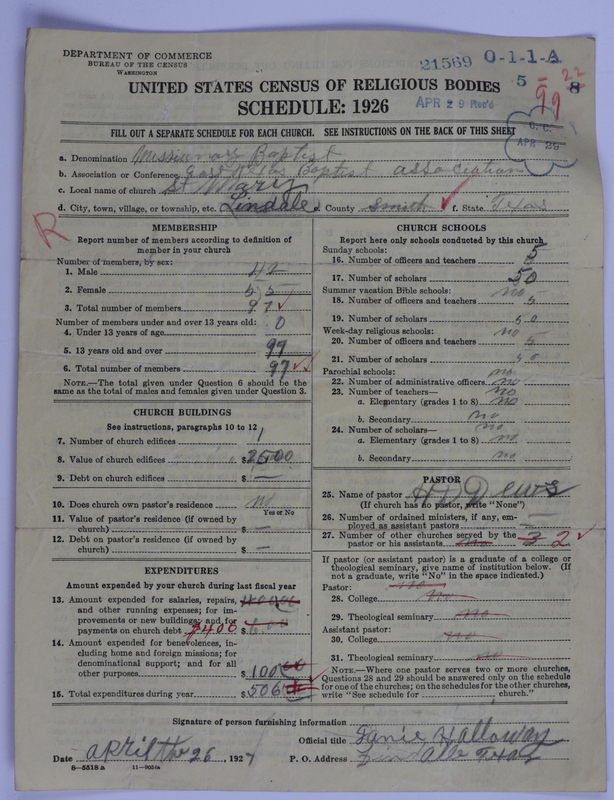 DEPARTMENT OF COMMERCE
BUREAU OF THE CENSUS
WASHINGTON
21569 0-1-1-A
5 - 8
22
99
APR 29 Rec'd
UNITED STATES CENSUS OF RELIGIOUS BODIES
SCHEDULE: 1926
FILL OUT A SEPARATE SCHEDULE FOR EACH CHURCH. SEE INSTRUCTIONS ON THE BACK OF THIS SHEET
APR 29
a. Denomination Missionary Baptist
b. Association or Conference East Baptist association
c. Local name of church St Mary
d. City, town, village, or township, etc. Lindale e. County Smith f. State Texas
R
MEMBERSHIP
Report number of members according to definition of
member in your church
Number of members, by sex:
1. Male 42
2. Female 55
3. Total number of members 97
Number of members under and over 13 years old:
4. Under 13 years of age 0
5. 13 years old and over 99
6. Total number of members 97
NOTE.—The total given under Question 6 should be the
same as the total of males and females given under Question 3.
CHURCH BUILDINGS
See instructions, paragraphs 10 to 12
7. Number of church edifices 1
8. Value of church edifices $2500
9. Debt on church edifices $ —
10. Does church own pastor's residence no
Yes or No
11. Value of pastor's residence (if owned by
church) $ —
12. Debt on pastor's residence (if owned by
church) $ —
EXPENDITURES
Amount expended by your church during last fiscal year
13. Amount expended for salaries, repairs,
and other running expenses; for im-
provements or new buildings; and for
payments on church debt $400 $
14. Amount expended for benevolences, in-
cluding home and foreign missions; for
denominational support; and for all
other purposes $100
15. Total expenditures during year $506
CHURCH SCHOOLS
Report here only schools conducted by this church
Sunday schools:
16. Number of officers and teachers 5
17. Number of scholars 50
Summer vacation Bible schools: no
18. Number of officers and teachers 5
19. Number of scholars 50
Week-day religious schools: no
20. Number of officers and teachers 5
21. Number of scholars 50
Parochial schools: no
22. Number of administrative officers no
23. Number of teachers— no
a. Elementary (grades 1 to 8) no
b. Secondary no
24. Number of scholars— no
a. Elementary (grades 1 to 8) no
b. Secondary no
PASTOR
25. Name of pastor H D Dews
(If church has no pastor, write "None")
26. Number of ordained ministers, if any, em-
ployed as assistant pastors —
27. Number of other churches served by the
pastor or his assistants no 3 2
If pastor (or assistant pastor) is a graduate of a college or
theological seminary, give name of institution below. (If
not a graduate, write "No" in the space indicated.)
Pastor: no
28. College no
29. Theological seminary no
Assistant pastor:
30. College no
31. Theological seminary no
NOTE.—Where one pastor serves two or more churches,
Questions 28 and 29 should be answered only on the schedule
for one of the churches; on the schedules for the other churches,
write "See schedule for church."
Signature of person furnishing information
Official title Janie Halloway
Date april the 26, 1927 P. O. Address Lindale Texas
8—5518 a 11—9054a